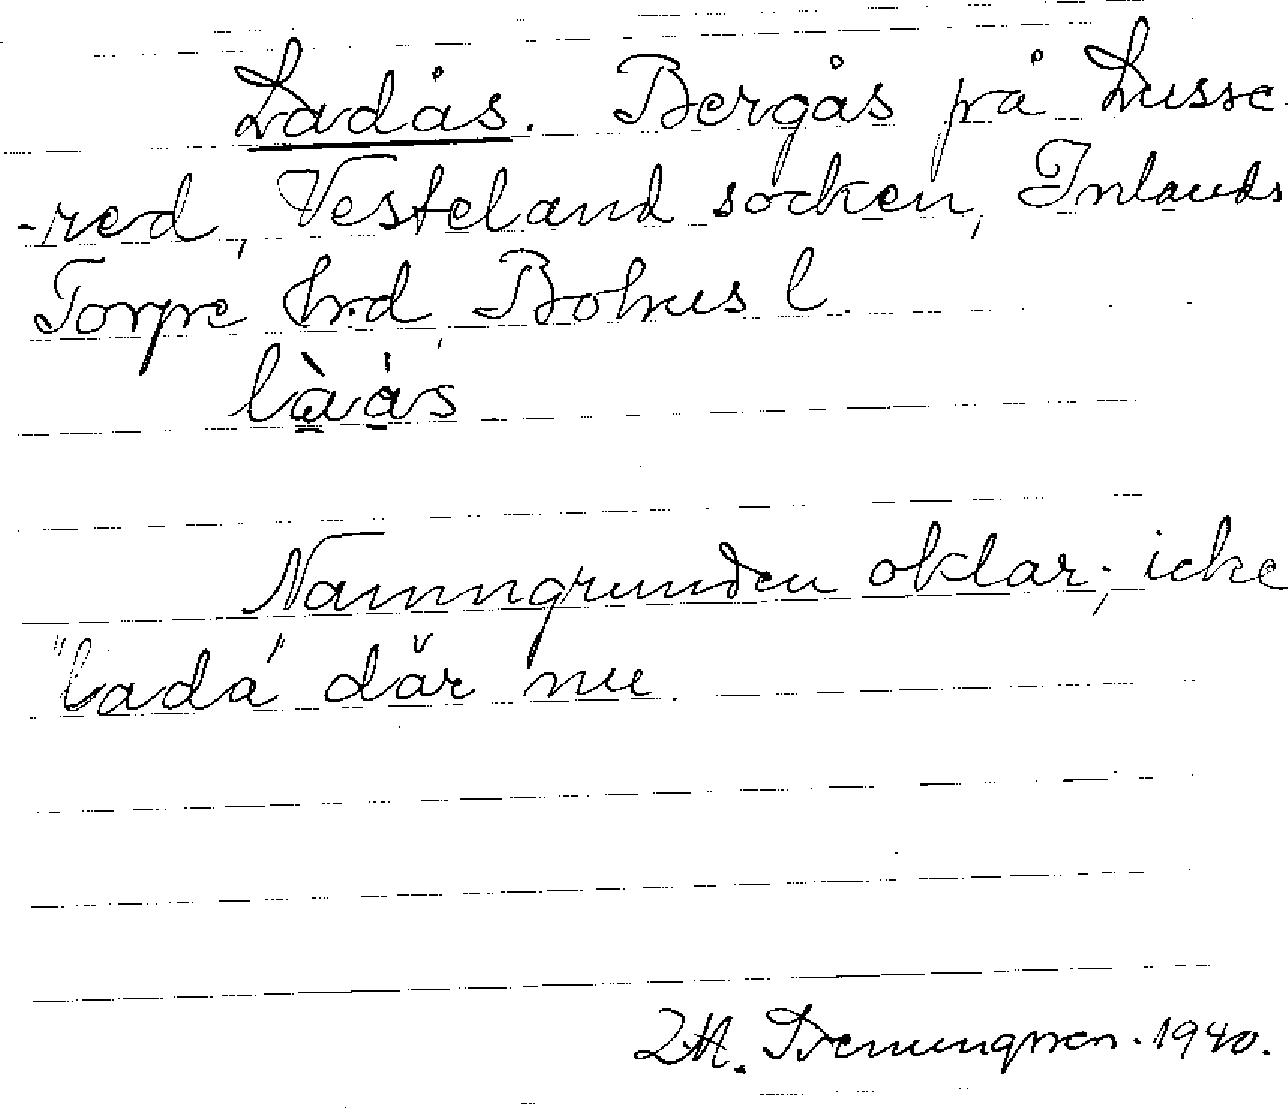 Ladås. Bergås på Lusse-
-red, Vesteland socken, Inlands
Torpe hrd Bohus l.
làás
Namngrunden oklar; icke
"lada" där nu.
1940.